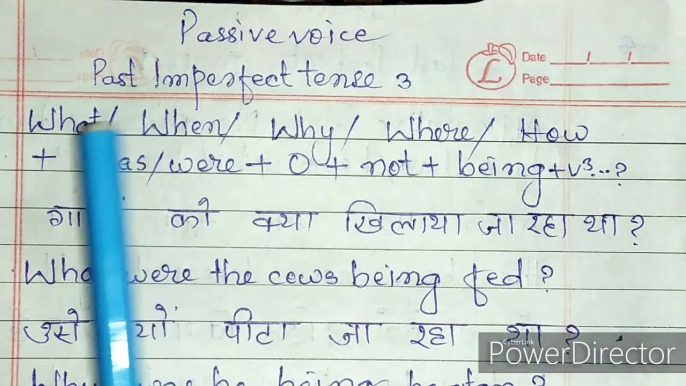 Passive voice
Past Imperfect tense 3
Date
Page
What/ When/ Why/ Where/ How
+ as/were + O + not + being + v3..?
को क्या खिलाया जा रहा था ?
were the cows being fed ?
उसे पीटा जा रहा था ?
CyberLink
PowerDirector
he being